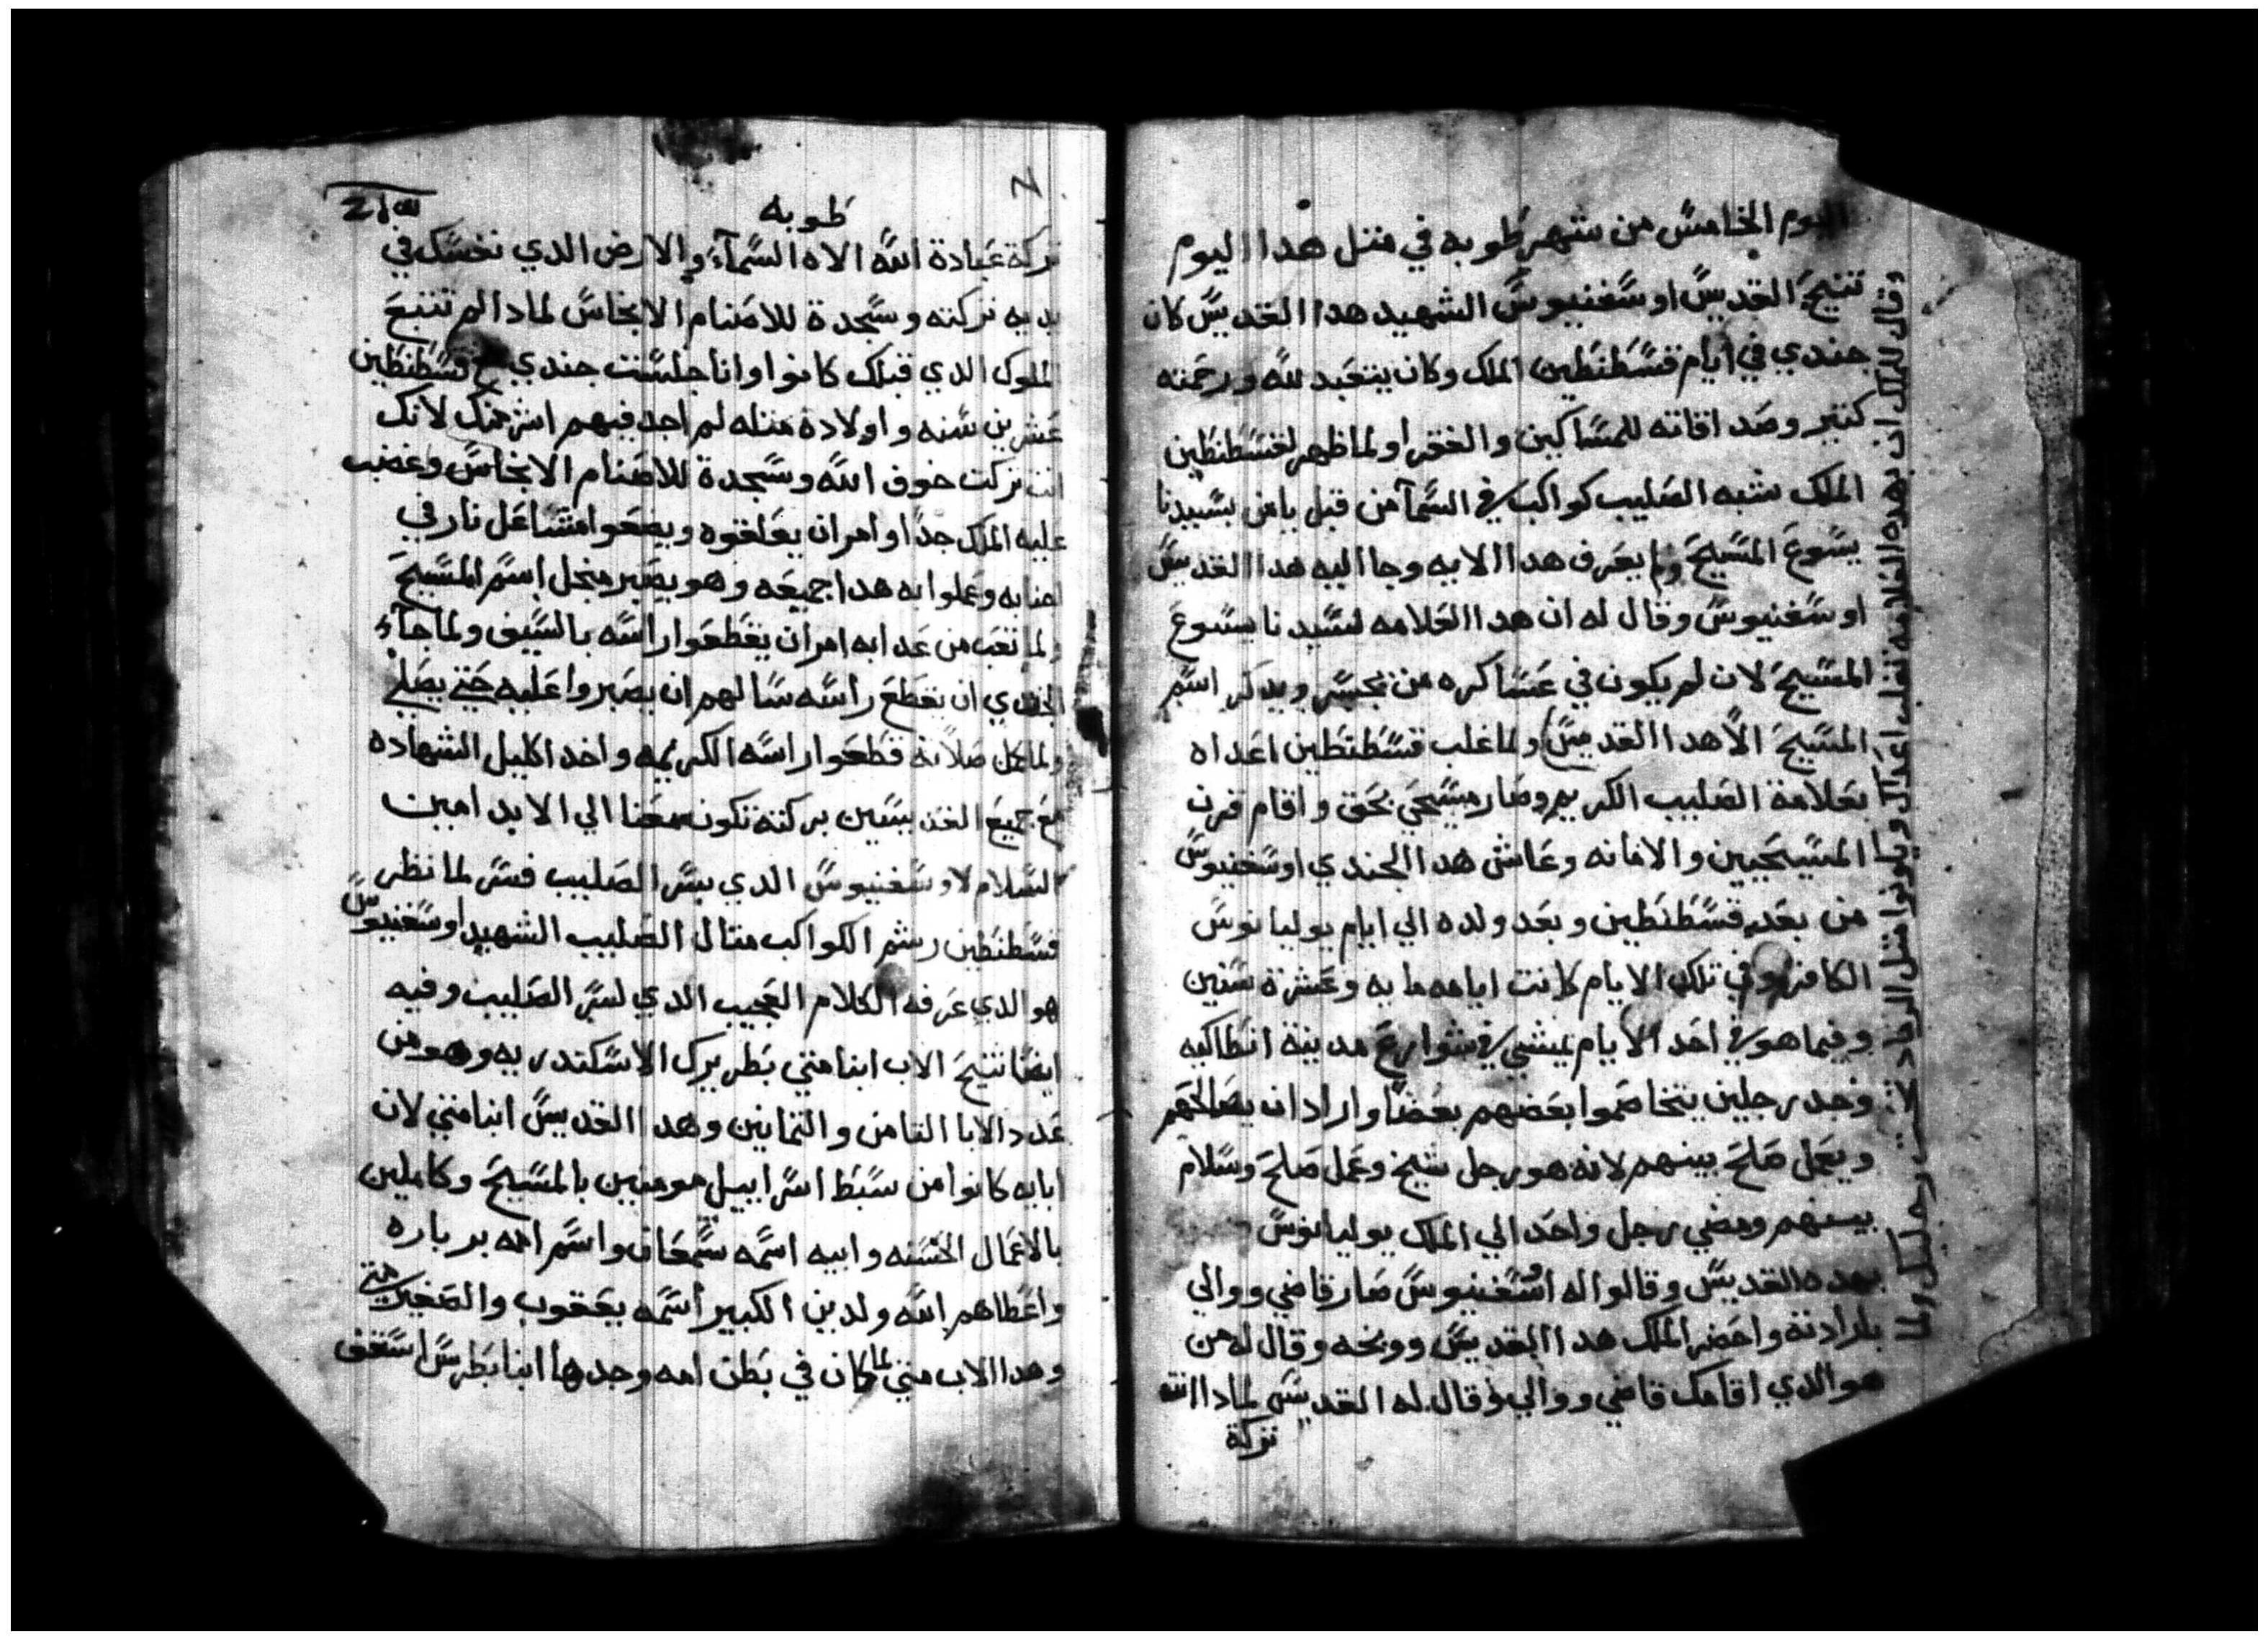 اليوم الخامس من شهر طوبه في مثل هدا اليوم
تنيح القديس اوسغنيوس الشهيد هدا القديس كان
جندي في ايام قسطنطين الملك وكان يتعبد لله ورحمته
كتير وصداقاته للمساكين والفقرا ولما ظهر لقسطنطين
الملك شبه الصليب كواكب في السمآ من قبل يامن بسيدنا
يسوع المسيح ولم يعرف هدا الايه وجا اليه هدا القديس
اوسغنيوس وقال له ان هدا العلامه لسيدنا يسوع
المسيح لان لم يكون في عساكره من يجسر ويدكر اسم
المسيح الاّ هدا القديس ولما غلب قسطنطين اعداه
بعلامة الصليب الكريم وصار مسيحي بحق واقام قرن
المسيحيين والامانه وعاش هدا الجندي اوسغنيوس
من بعد قسطنطين وبعد ولده الي ايام يوليانوس
الكافر وفي تلك الايام كانت ايامه مايه وعشرة سنين
وفيما هو في احد الايام يمشي في شوارع مدينة انطاكيه
وجد رجلين يتخاصموا بعضهم بعضاً واراد ان يصالحهم
ويعمل صلح بينهم لانه هو رجل شيخ وعمل صلح وسلام
بينهم ومضي رجل واحد الي الملك يوليانوس
بهده القديس وقالوا له اوسغنيوس صار قاضي ووالي
بلا رادتة واحضر الملك هدا القديس ووبخه وقال له من
هو الدي اقامك قاضي ووالي وقال له القديس لمادا انت
تركة
وقال للملك ان بهده العلامه تغلب اعداك ويكونوا مثل الرماد لا تحت رجليك ولما
طوبه
تركة عبادة الله الاه السمآء والارض الدي نفسك في
يديه تركته وسجدة للاصنام الانجاس لمادا لم تتبع
الملوك الدي قبلك كانوا وانا جلست جندي مع قسطنطين
عشرين سنه واولادة مثله لم اجد فيهم اشر منك لانك
انت تركت خوف الله وسجدة للاصنام الانجاس وغضب
عليه الملك جدا وامر ان يعلقوه ويضعوا مشاعل نار في
اجنابه وعملوا به هدا جميعه وهو يصبر من اجل اسم المسيح
ولما تعب من عدابه امر ان يقطعوا راسه بالسيف ولما جآء
الجندي ان يقطع راسه سالهم ان يصبروا عليه حتي يصلي
ولما كمل صلاته قطعوا راسه الكريمه واخد اكليل الشهاده
مع جميع القديسين بركته تكون معنا الي الابد امين
السلام لاوسغنيوس الدي بسر الصليب فسر لما نظر
قسطنطين رشم الكواكب متال الصليب الشهيد اوسغنيوس
هو الدي عرفه الكلام العجيب الدي لسر الصليب وفيه
ايضا تنيح الاب ابنا متي بطريرك الاسكندريه وهو من
عدد الابا التامن والتمانين وهدا القديس ابنا متي لان
ابايه كانوا من سبط اسراييل مومنين بالمسيح وكاملين
بالاعمال الحسنه وابيه اسمه سمعان واسم امه برباره
واعطاهم الله ولدين الكبير اسمه يعقوب والصغير متي
وهدا الاب متي لما كان في بطن امه وجدها ابنا بطرس اسقف